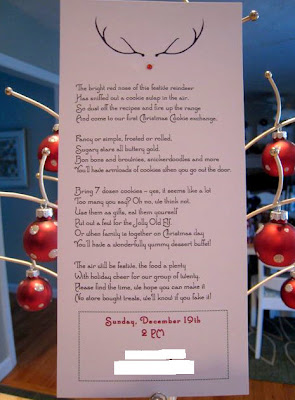 The bright red nose of this festive reindeer
Has sniffed out a cookie swap in the air.
So dust off the recipes and fire up the range
And come to our first Christmas Cookie exchange.
Fancy or simple, frosted or rolled,
Sugary stars all buttery gold.
Bon bons and brownies, snickerdoodles and more
You'll have armloads of cookies when you go out the door.
Bring 7 dozen cookies – yes, it seems like a lot
Too many you say? Oh no, we think not.
Use them as gifts, eat them yourself
Put out a few for the Jolly Old Elf
Or when family is together on Christmas day
You'll have a wonderfully yummy dessert buffet!
The air will be festive, the food a plenty
With holiday cheer for our group of twenty.
Please find the time, we hope you can make it
No store bought treats, we'll know if you fake it!
Sunday, December 19th
2 PM